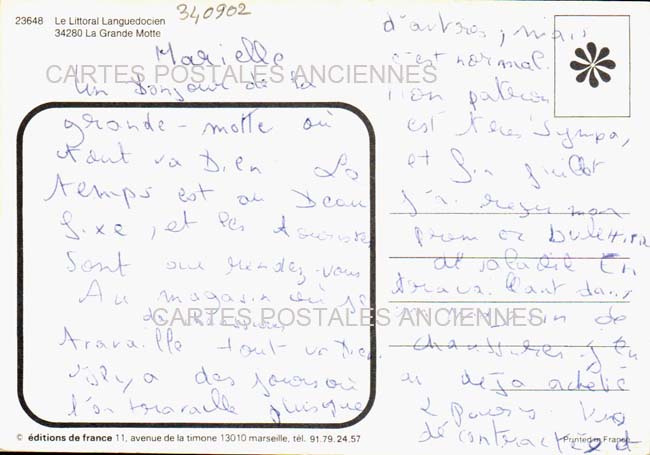 340902
23648 Le Littoral Languedocien
34280 La Grande Motte
Marielle
CARTES POSTALES ANCIENNES
Un Bonjour de la
grande-motte où
tout va Bien. Le
temps est au Beau
fixe, et les touristes
sont au rendez-vous
Au magasin où je
de chaussures
travaille tout va Bien
il y a des jours où
l'on travaille plus que
d'autres, mais
c'est normal.
Mon patron
est très sympa,
et fin juillet
j'ai reçu mon
premier Bulletin
de salaire En
travaillant dans
un magasin de
CARTES POSTALES ANCIENNES
chaussures j'en
ai déjà acheté
2 paires.
décontractée
© éditions de france 11, avenue de la timone 13010 marseille, tél. 91.79.24.57
Printed in France